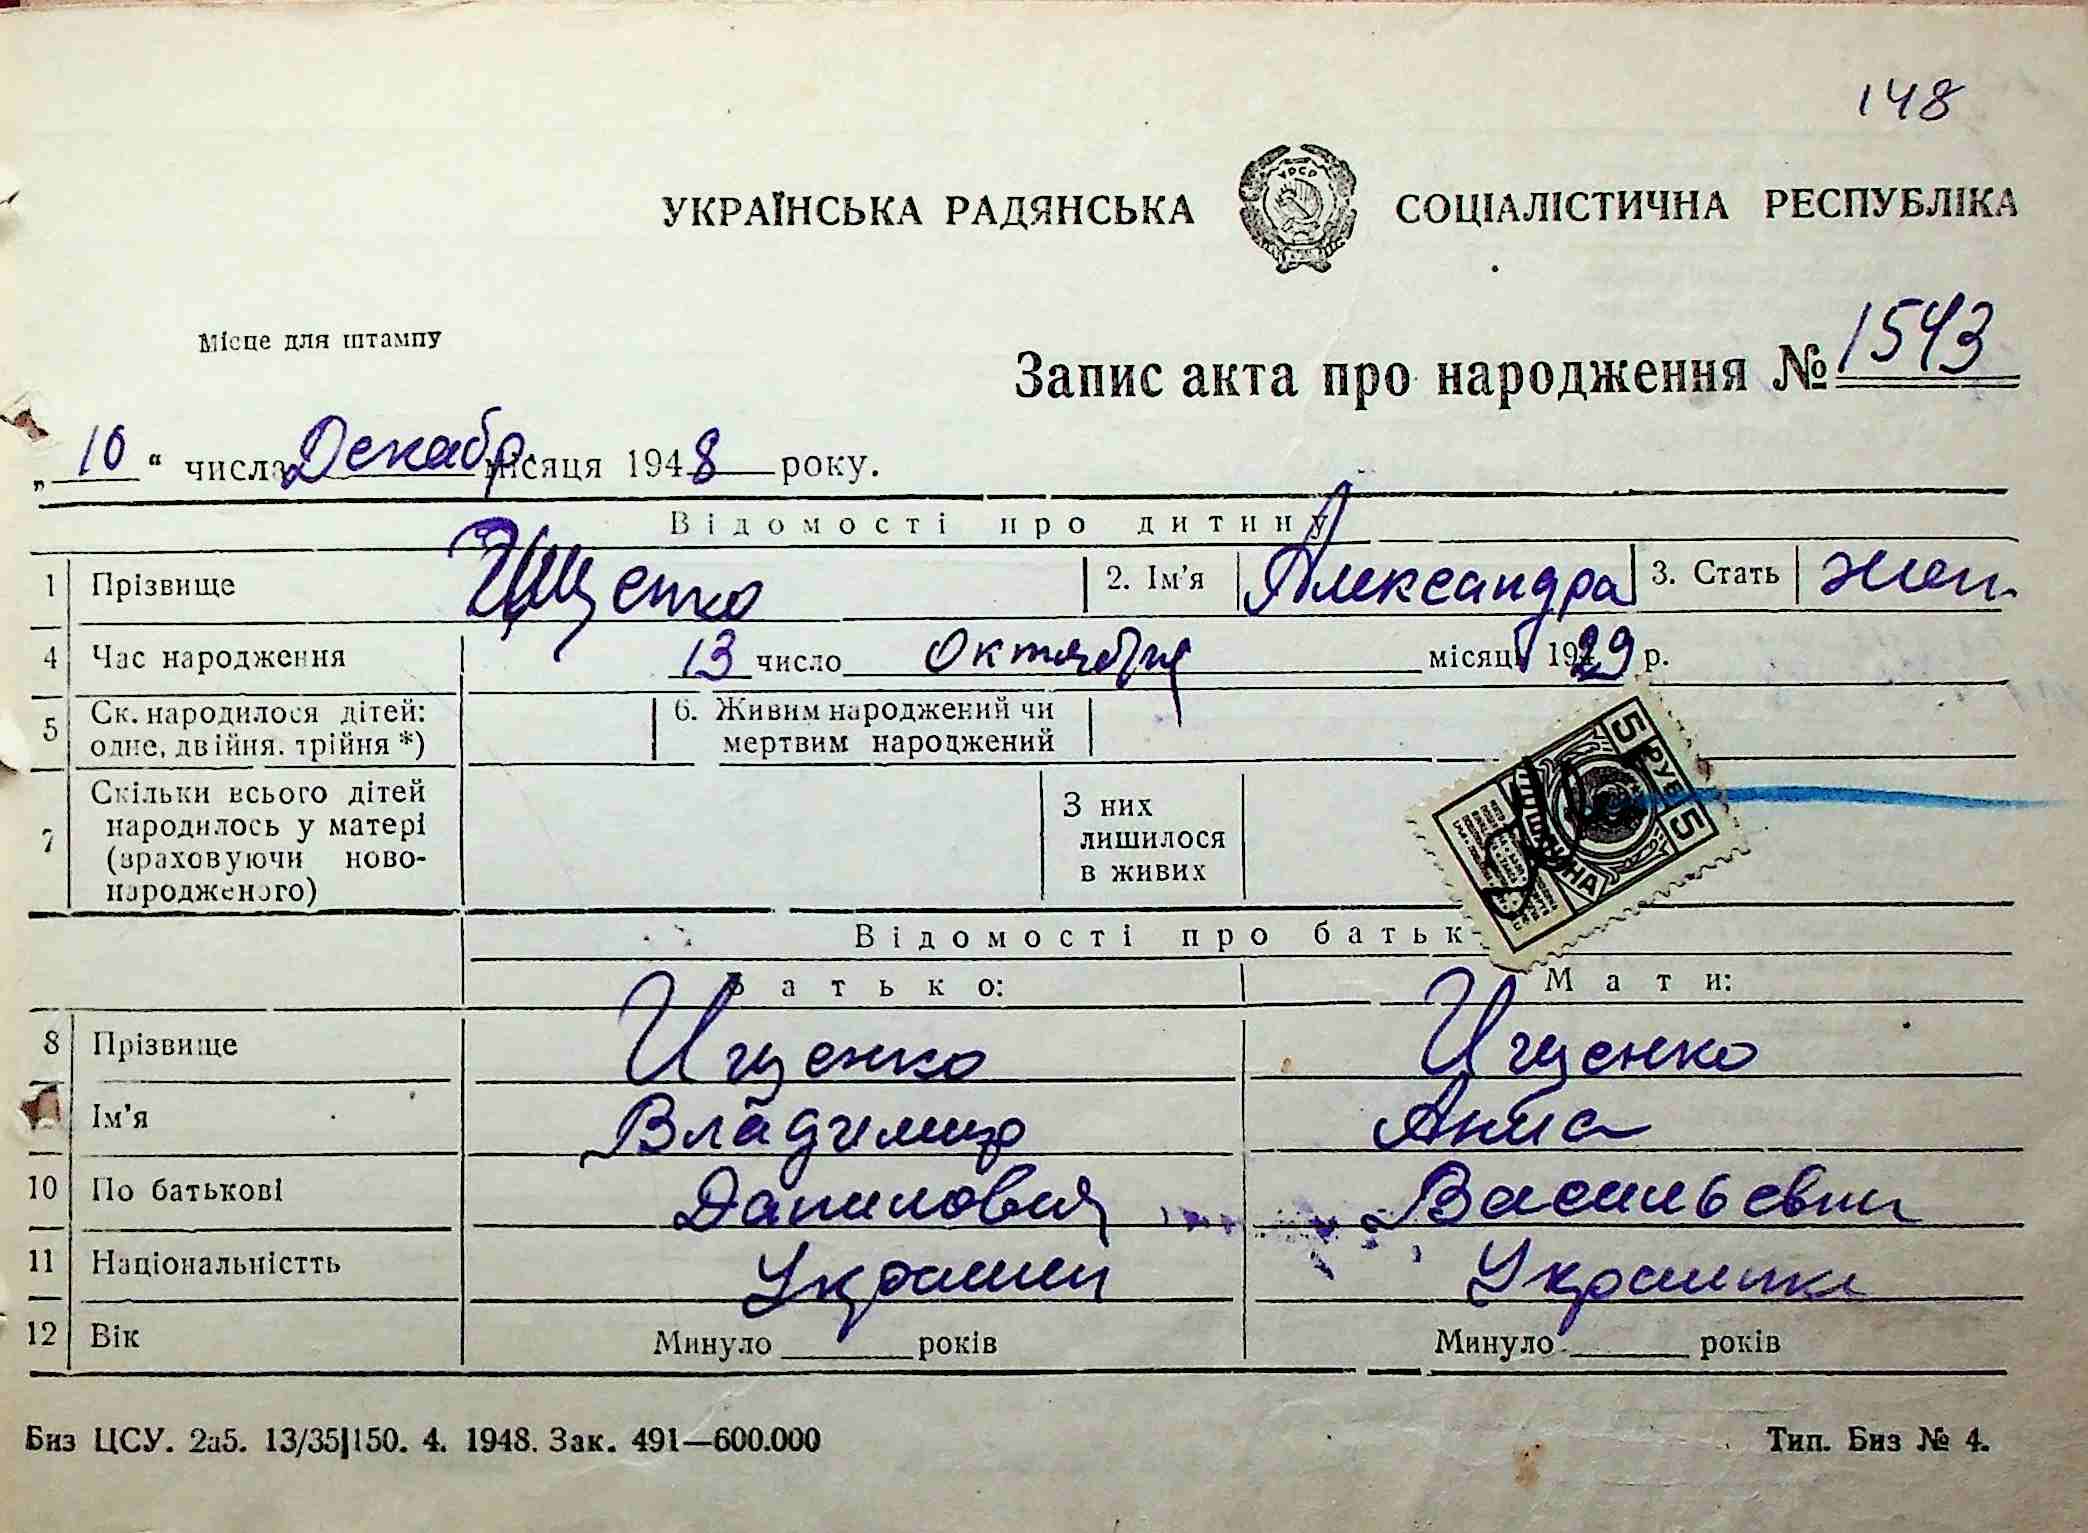 148
УКРАЇНСЬКА РАДЯНСЬКА СОЦІАЛІСТИЧНА РЕСПУБЛІКА
Місце для штампу
Запис акта про народження № 1543
„10“ числа Декабр місяця 1948 року.
Відомості про дитину
1 Прізвище Ищенко 2. Ім'я Александра 3. Стать жен.
4 Час народження 13 число октября місяця 1929 р.
5 Ск. народилося дітей: 6. Живим народжений чи
одне, двійня, трійня *) мертвим народжений
5 РУБ 5
7 Скільки всього дітей З них
народилось у матері лишилося
(враховуючи ново- в живих
народженого)
Відомості про батьк
Батько: Мати:
8 Прізвище Ищенко Ищенко
Ім'я Владимир Анна
10 По батькові Данилович Васильевн
11 Національністть Украинец Украинка
12 Вік Минуло років Минуло років
Биз ЦСУ. 2а5. 13/35|150. 4. 1948. Зак. 491—600.000 Тип. Биз № 4.